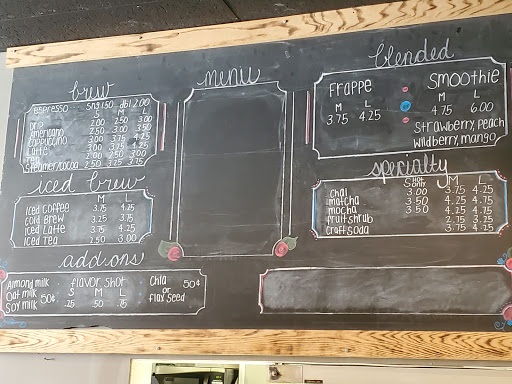 brew
espresso sng 1.50 dbl 2.00
S M L
drip 2.00 2.50 3.00
americano 2.50 3.00 3.50
cappuccino 3.00 3.75 4.25
latte 3.00 3.75 4.25
tea 2.00 2.50 3.00
steamer/cocoa 2.50 3.75 3.75
iced brew
M L
iced coffee 3.75 4.25
cold brew 3.25 3.75
iced latte 3.75 4.25
iced tea 2.50 3.00
add ons
Almond milk
Oat milk 50¢
Soy milk
flavor shot
S M L
.25 .50 .75
Chia
or
flax seed
50¢
menu
blended
Frappe
M L
3.75 4.25
Smoothie
M L
4.75 6.00
Strawberry, peach
Wildberry, mango
specialty
S HOT ONLY M L
chai 3.00 3.75 4.25
matcha 3.50 4.25 4.75
mocha 3.50 4.25 4.75
fruit shrub 2.75 3.25
craft soda 3.75 4.25